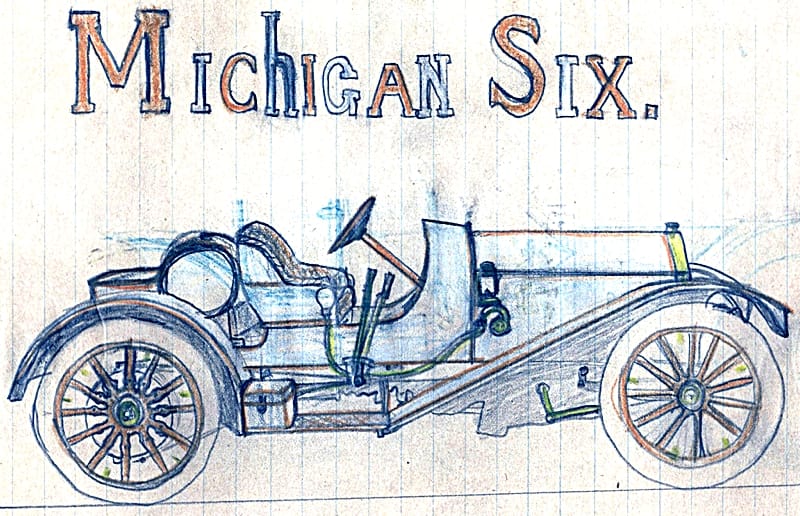 MichiGAN SiX.